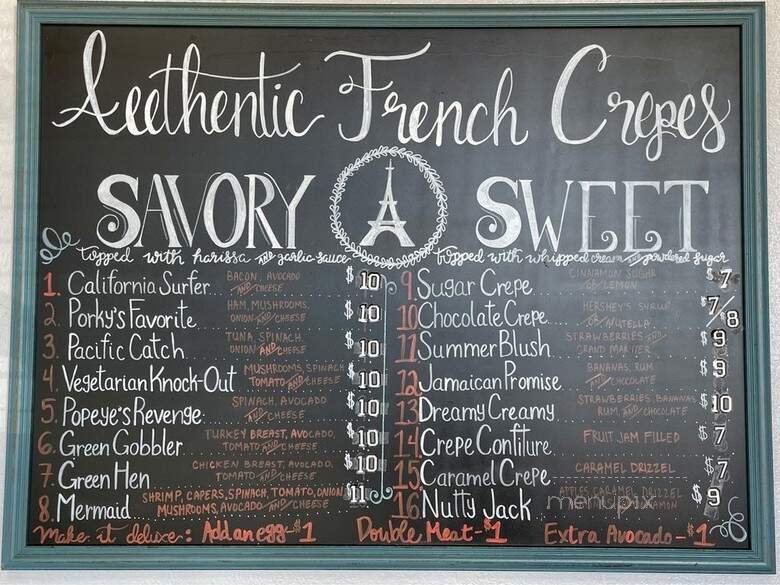 Authentic French Crepes
SAVORY
topped with harissa AND garlic sauce
1. California Surfer BACON, AVOCADO AND CHEESE $10
2. Porky's Favorite HAM, MUSHROOMS, ONION AND CHEESE $10
3. Pacific Catch TUNA, SPINACH, ONION AND CHEESE $10
4. Vegetarian Knock-Out MUSHROOMS, SPINACH TOMATO AND CHEESE $10
5. Popeye's Revenge SPINACH, AVOCADO AND CHEESE $10
6. Green Gobbler TURKEY BREAST, AVOCADO, TOMATO AND CHEESE $10
7. Green Hen CHICKEN BREAST, AVOCADO, TOMATO AND CHEESE $10
8. Mermaid SHRIMP, CAPERS, SPINACH, TOMATO, ONION MUSHROOMS, AVOCADO AND CHEESE $11
SWEET
topped with whipped cream AND powdered sugar
9. Sugar Crepe CINNAMON SUGAR OR LEMON $7
10 Chocolate Crepe HERSHEY'S SYRUP OR NUTELLA $7/$8
11 Summer Blush STRAWBERRIES AND GRAND MARNIER $9
12 Jamaican Promise BANANAS, RUM AND CHOCOLATE $9
13 Dreamy Creamy STRAWBERRIES, BANANAS RUM, AND CHOCOLATE $10
14 Crepe Confiture FRUIT JAM FILLED $7
15 Caramel Crepe CARAMEL DRIZZEL $7
16 Nutty Jack APPLES, CARAMEL DRIZZEL CINNAMON $9
Make it deluxe: Add an egg-$1 Double Meat-$1 Extra Avocado-$1
menupix